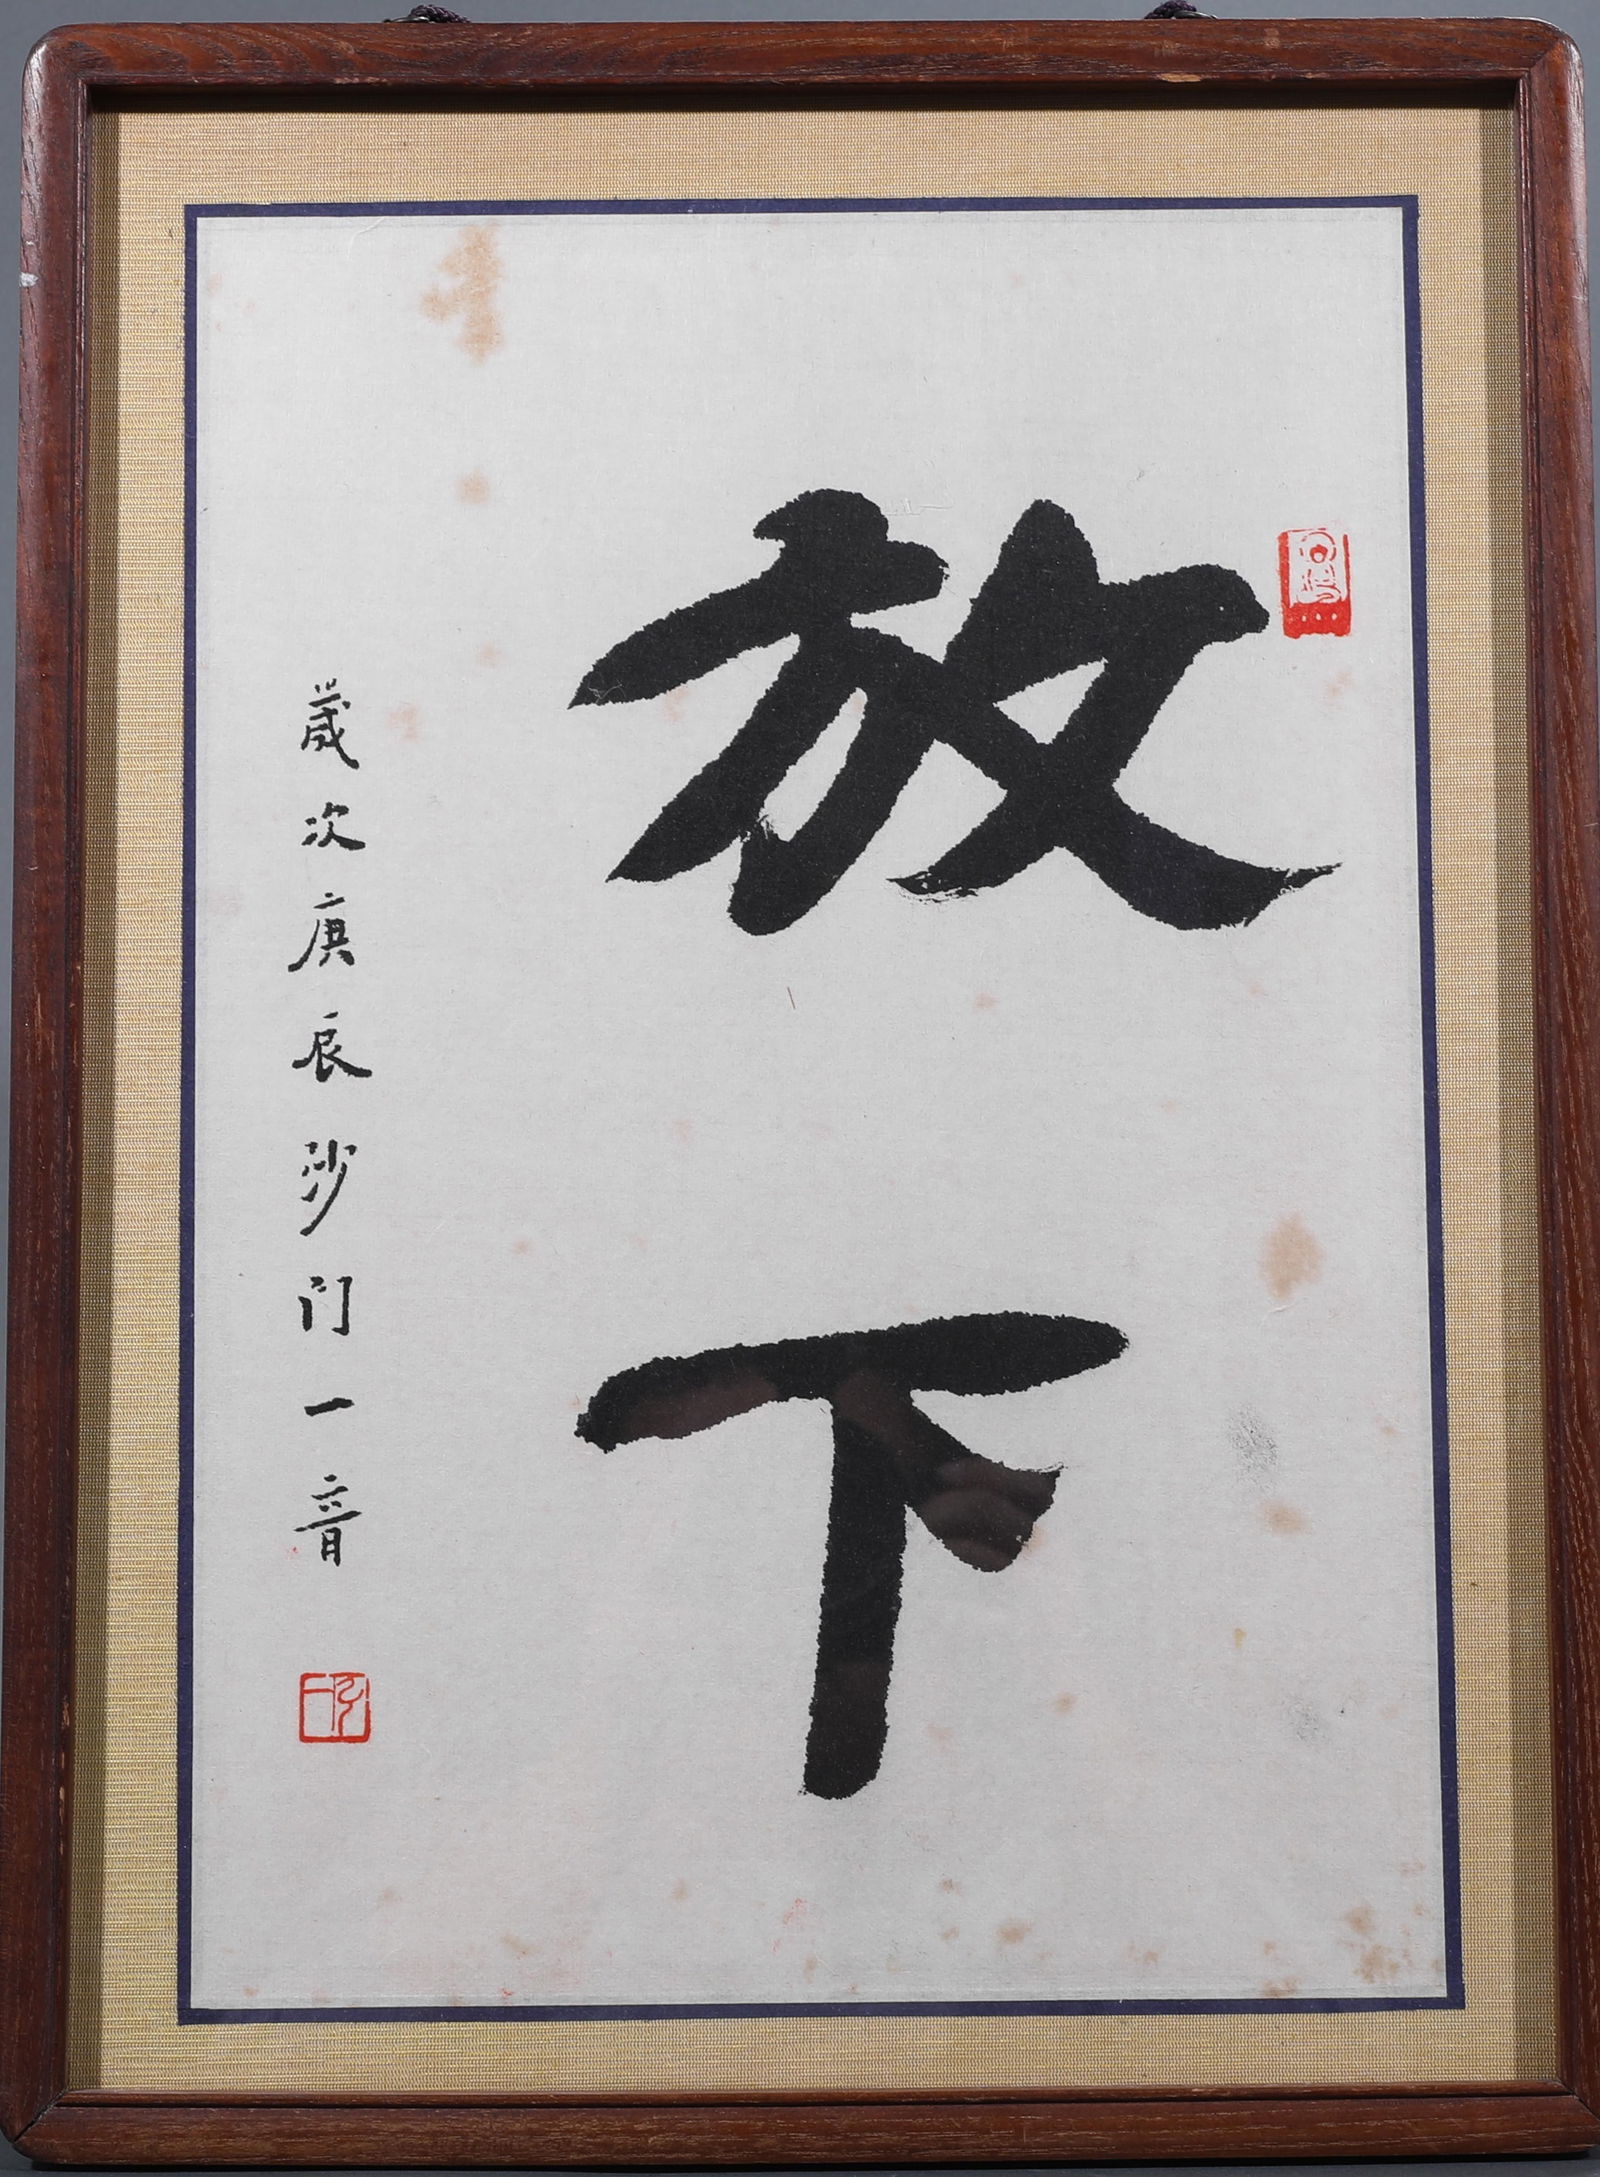 放下
歲次庚辰沙门一音